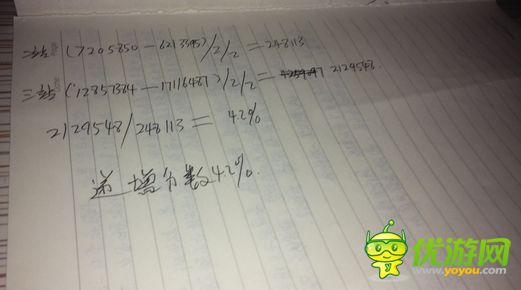 二站 (7205850-6213395)/2/2=248113
三站 (12851384-17116487)/2/2= 2129548
2129548/248113= 42%
递增分数42%.
优游网
www.yoyou.com